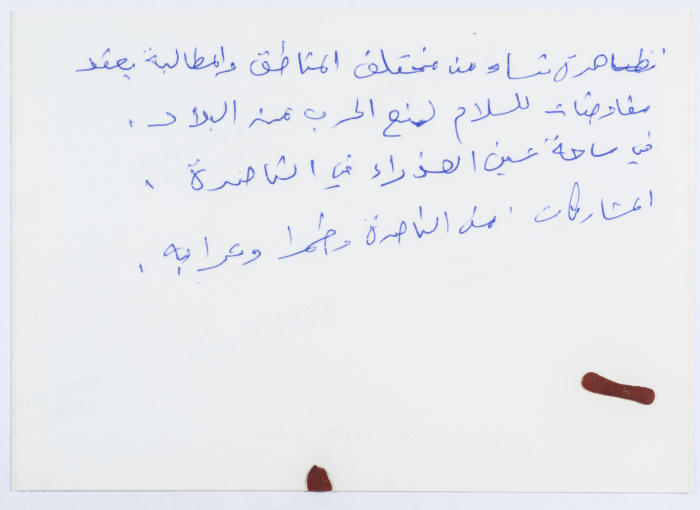 تظاهرة نساء من مختلف المناطق والمطالبة بعقد
مفاوضات للسلام لمنع الحرب من البلاد.
في ساحة عين العذراء في الناصرة.
المشاركات: من الناصرة وطمرا وعرابه.